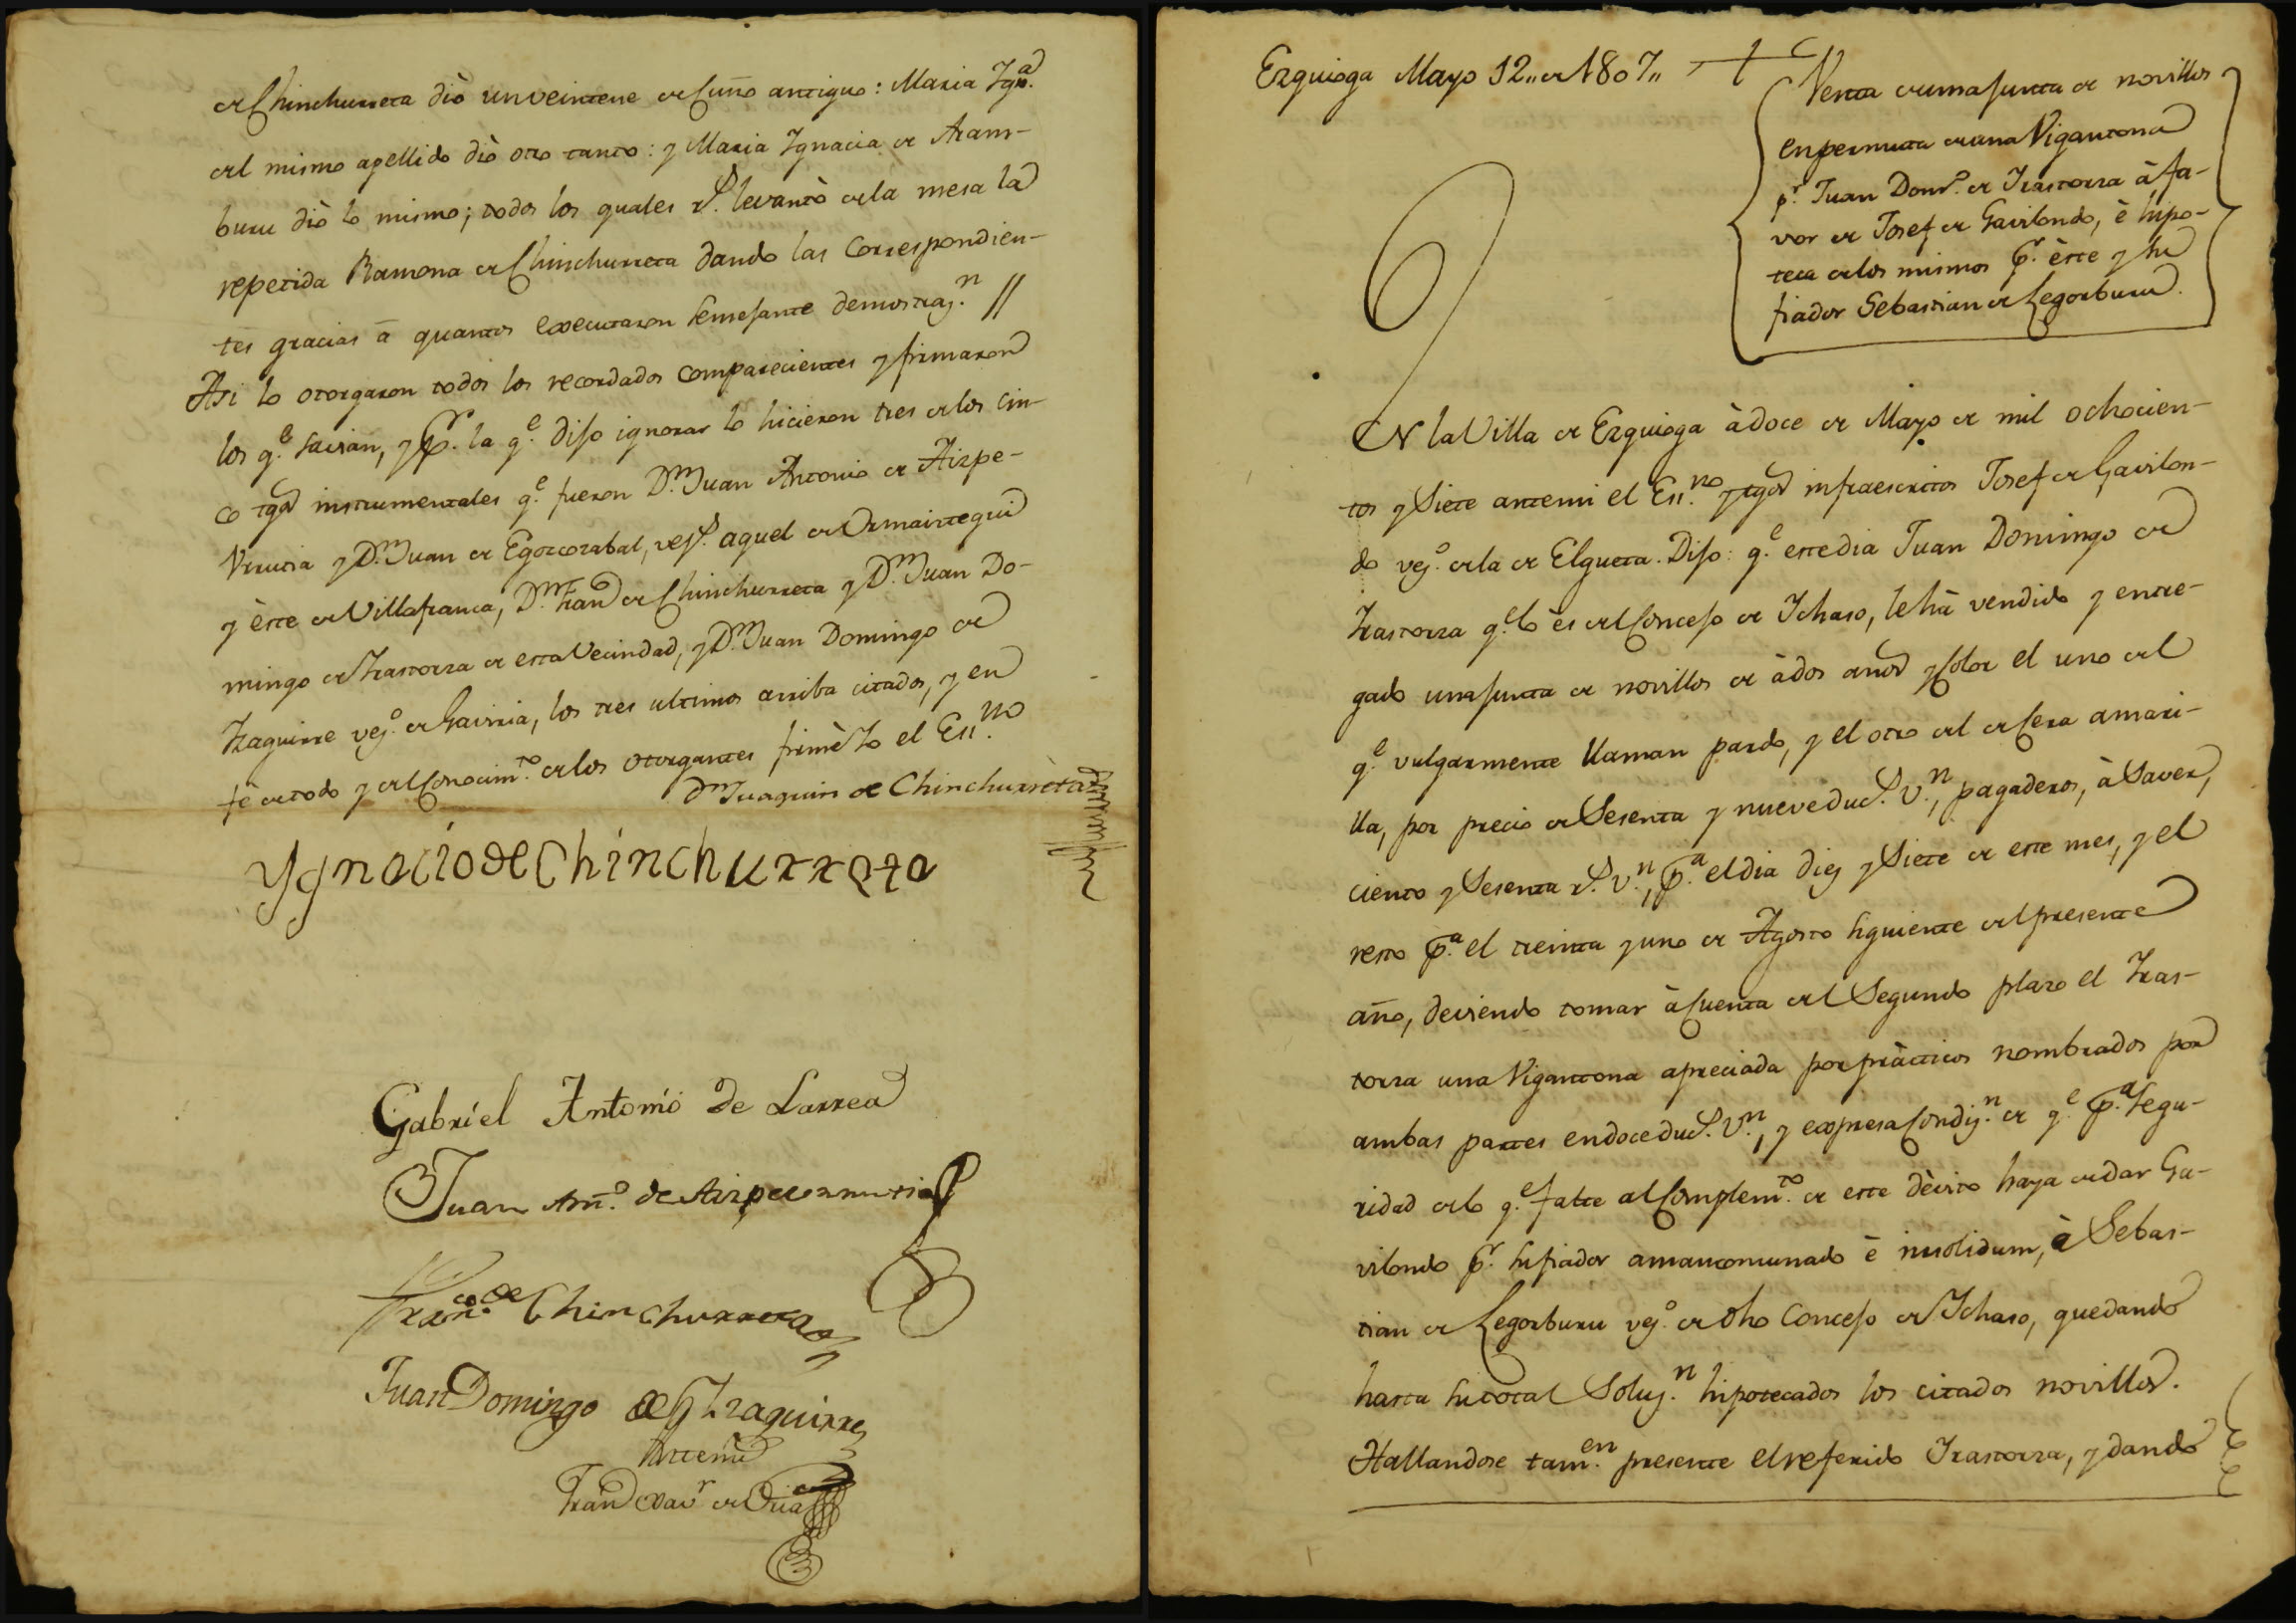 de Chinchurreta diò un veintene de Cuño antiguo: Maria Ygn.ª
del mismo apellido diò otro tanto: y Maria Ygnacia de Aram-
buru diò lo mismo; todos los quales r.s levantò de la mesa la
repetida Ramona de Chinchurreta dando las Correspondien-
tes gracias à quantos executaron semejante demostraz.n //
Asi lo otorgaron todos los recordados comparecientes y firmaron
los q.e savian, y p.r la q.e dijo ignorar lo hicieron tres de los cin-
co tgos instrumentales q.e fueron D.n Juan Antonio de Aizpe-
Vrrutia y D.n Juan de Egozcozabal, vez.s aquel de Ormaiztegui
y èste de Villafranca, D.n Fran.co de Chinchurreta y D.n Juan Do-
mingo de Yrastorza de esta Vecindad, y D.n Juan Domingo de
Yzaguirre vez.o de Gaviria, los tres ultimos arriba citados, y en
fè de todo y del Conocim.to de los otorgantes firmè Yo el Ess.no
D.n Juaquin de Chinchurreta
Ygnacio de Chinchurreta
Gabriel Antonio de Larrea
Juan Ant.o de Aizpeurrutia
Fran.co de Chinchurreta
Juan Domingo de Yzaguirre
Antemi
Fran.co Xav.r de Oria
Ezquioga Mayo 12,, de 1807,,
Venta de una junta de novillos
en permuta de una Vigantona
p.r Juan Dom.o de Yrastorza à fa-
vor de Josef de Gavilondo, è hipo-
teca de los mismos p.r èste y su
fiador Sebastian de Legorburu.
EN la Villa de Ezquioga à doce de Mayo de mil ochocien-
tos y Siete antemi el Ess.no y tgos infraescritos Josef de Gavilon-
do vez.o de la de Elgueta. Dijo: q.e este dia Juan Domingo de
Yrastorza q.e lo ès del Concejo de Ychaso, le hà vendido y entre-
gado una junta de novillos de à dos años y Color el uno del
q.e vulgarmente llaman pardo, y el otro del de Cera amari-
lla, por precio de Sesenta y nueve duc.s v.n, pagaderos, à Saver,
ciento y Sesenta r.s v.n, p.a el dia diez y Siete de este mes, y el
resto p.a el treinta y uno de Agosto siguiente del presente
año, deviendo tomar à Cuenta del Segundo plazo el Yras-
torza una Vigantona apreciada por pràcticos nombrados por
ambas partes en doce duc.s V.n, y expresa Condiz.n de q.e p.a Segu-
ridad de lo q.e falte al Complem.to de este dèvito haya de dar Ga-
vilondo p.r su fiador amancomunado è insolidum, à Sebas-
tian de Legorburu vez.o de dho Concejo de Ychaso, quedando
hasta su total Soluz.n hipotecados los citados novillos.
Hallandose tam.en presente el referido Yrastorza, y dando